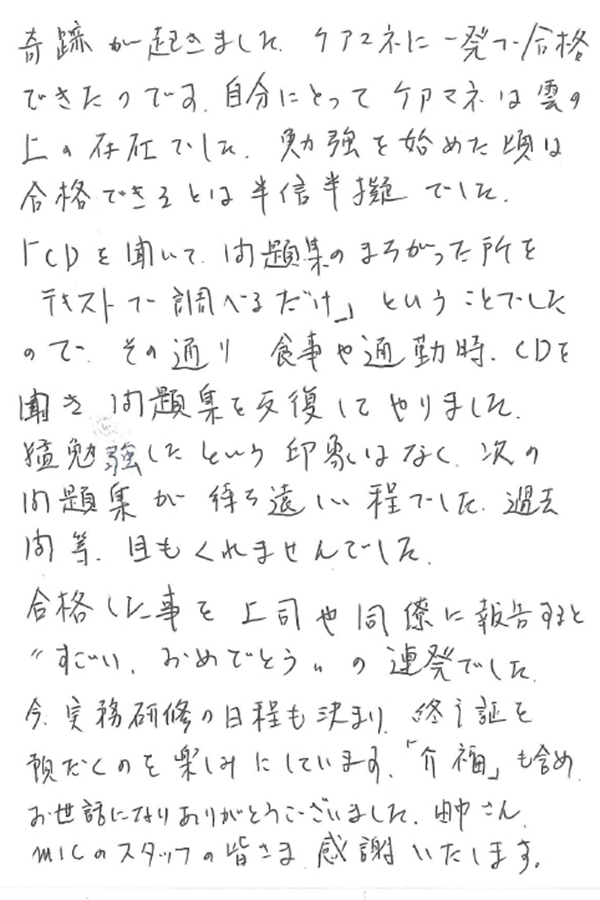 奇跡が起きました。ケアマネに一発で合格
できたのです。自分にとってケアマネは雲の
上の存在でした。勉強を始めた頃は
合格できるとは半信半擬でした。
「CDを聞いて、問題集のまちがった所を
テキストで調べるだけ」ということでした
ので、その通り食事や通勤時、CDを
聞き問題集を反復してやりました。
猛勉強したという印象はなく、次の
問題集が待ち遠しい程でした。過去
問等、目もくれませんでした。
合格した事を上司や同僚に報告すると
“すごい、おめでとう„の連発でした。
今、実務研修の日程も決まり、終了証を
頂だくのを楽しみにしています。「介福」も含め
お世話になりありがとうございました。田中さん、
MICのスタッフの皆さま感謝いたします。